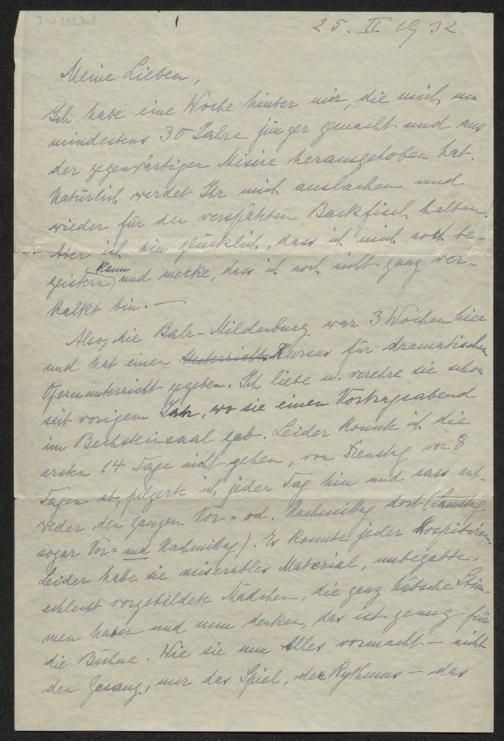 J.N. 282.368
25. II 1932
Meine Lieben,
Ich habe eine Woche hinter mir, die mich um
mindestens 30 Jahre jünger gemacht und aus
der gegenwärtigen Misère herausgehoben hat.
Natürlich werdet Ihr mich auslachen und
wieder für den verspäteten Backfisch halten.
Aber ich bin glücklich, dass ich mich noch be-
geistern kann und merke, dass ich noch nicht ganz ver-
kalkt bin. —
Also, die Bahr-Mildenburg war 3 Wochen hier
und hat einen Unterrichts Kursus für dramatischen
Opernunterricht gegeben. Ich liebe u. verehre sie schon
seit vorigem Jahr, wo sie einen Vortragsabend
im Bechsteinsaal gab. Leider konnte ich die
ersten 14 Tage nicht gehen, von Dienstag vor 8
Tagen ab, pilgerte ich jeden Tag hin und sass ent-
weder den ganzen Vor- od. Nachmittag dort (Samstag
sogar Vor- und Nachmittag). Es konnte jeder hospitieren.
Leider hatte sie miserables Material, unbegabte,
schlecht vorgebildete Mädchen, die ganz hübsche Stim-
men haben und nun denken, das ist genug für
die Bühne. Wie sie nun Alles vormacht — nicht
den Gesang, nur das Spiel, den Rythmus — das